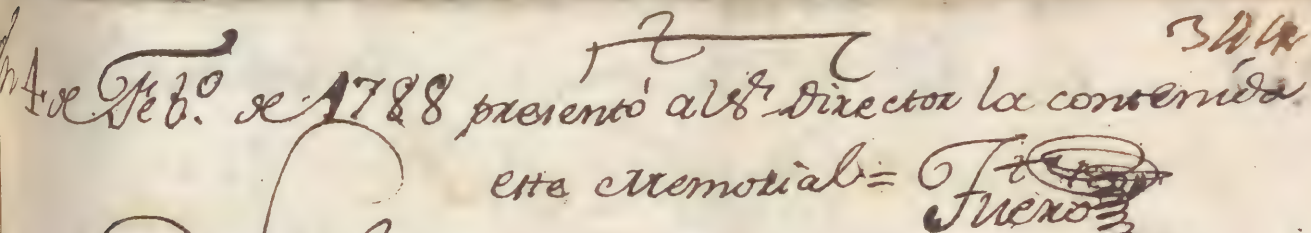 344
En 4 de Feb.º de 1788 presentó al Sr Director la contenida
este Memorial =
Fuero